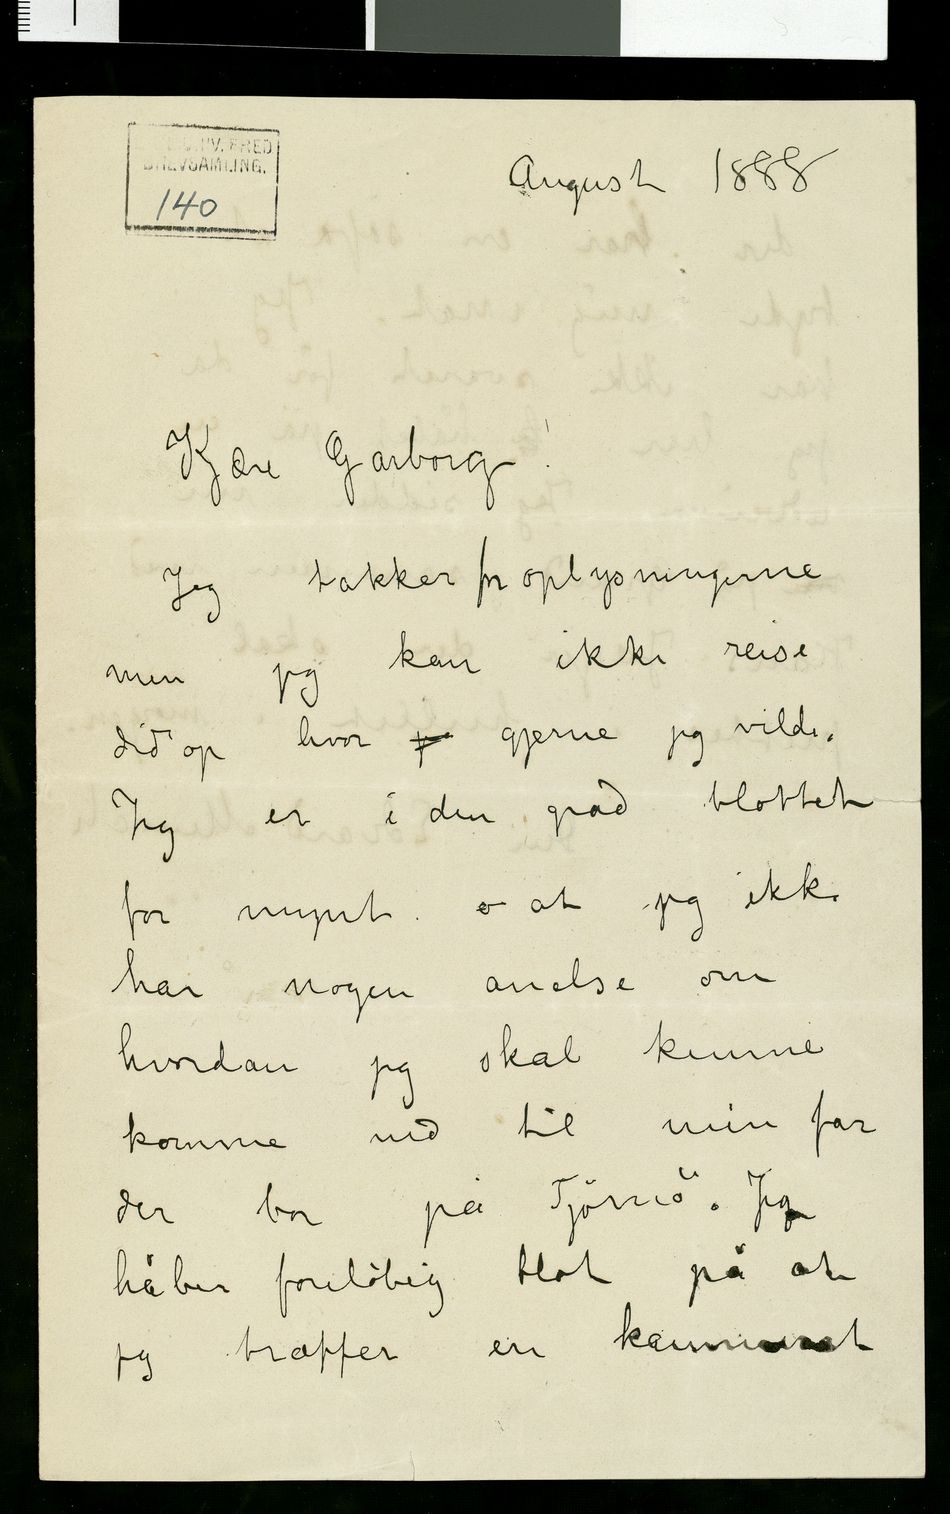 BREVSAMLING.
140
August 1888
Kjære Garborg!
Jeg takker for oplysningerne
men jeg kan ikke reise
did op hvor gjerne jeg vilde.
Jeg er i den grad blottet
for mynt. o at jeg ikke
har nogen anelse om
hvordan jeg skal kunne
komme ned til min far
der bor på Tjömö. Jeg
håber foreløbig blot på at
jeg træffer en kammerat